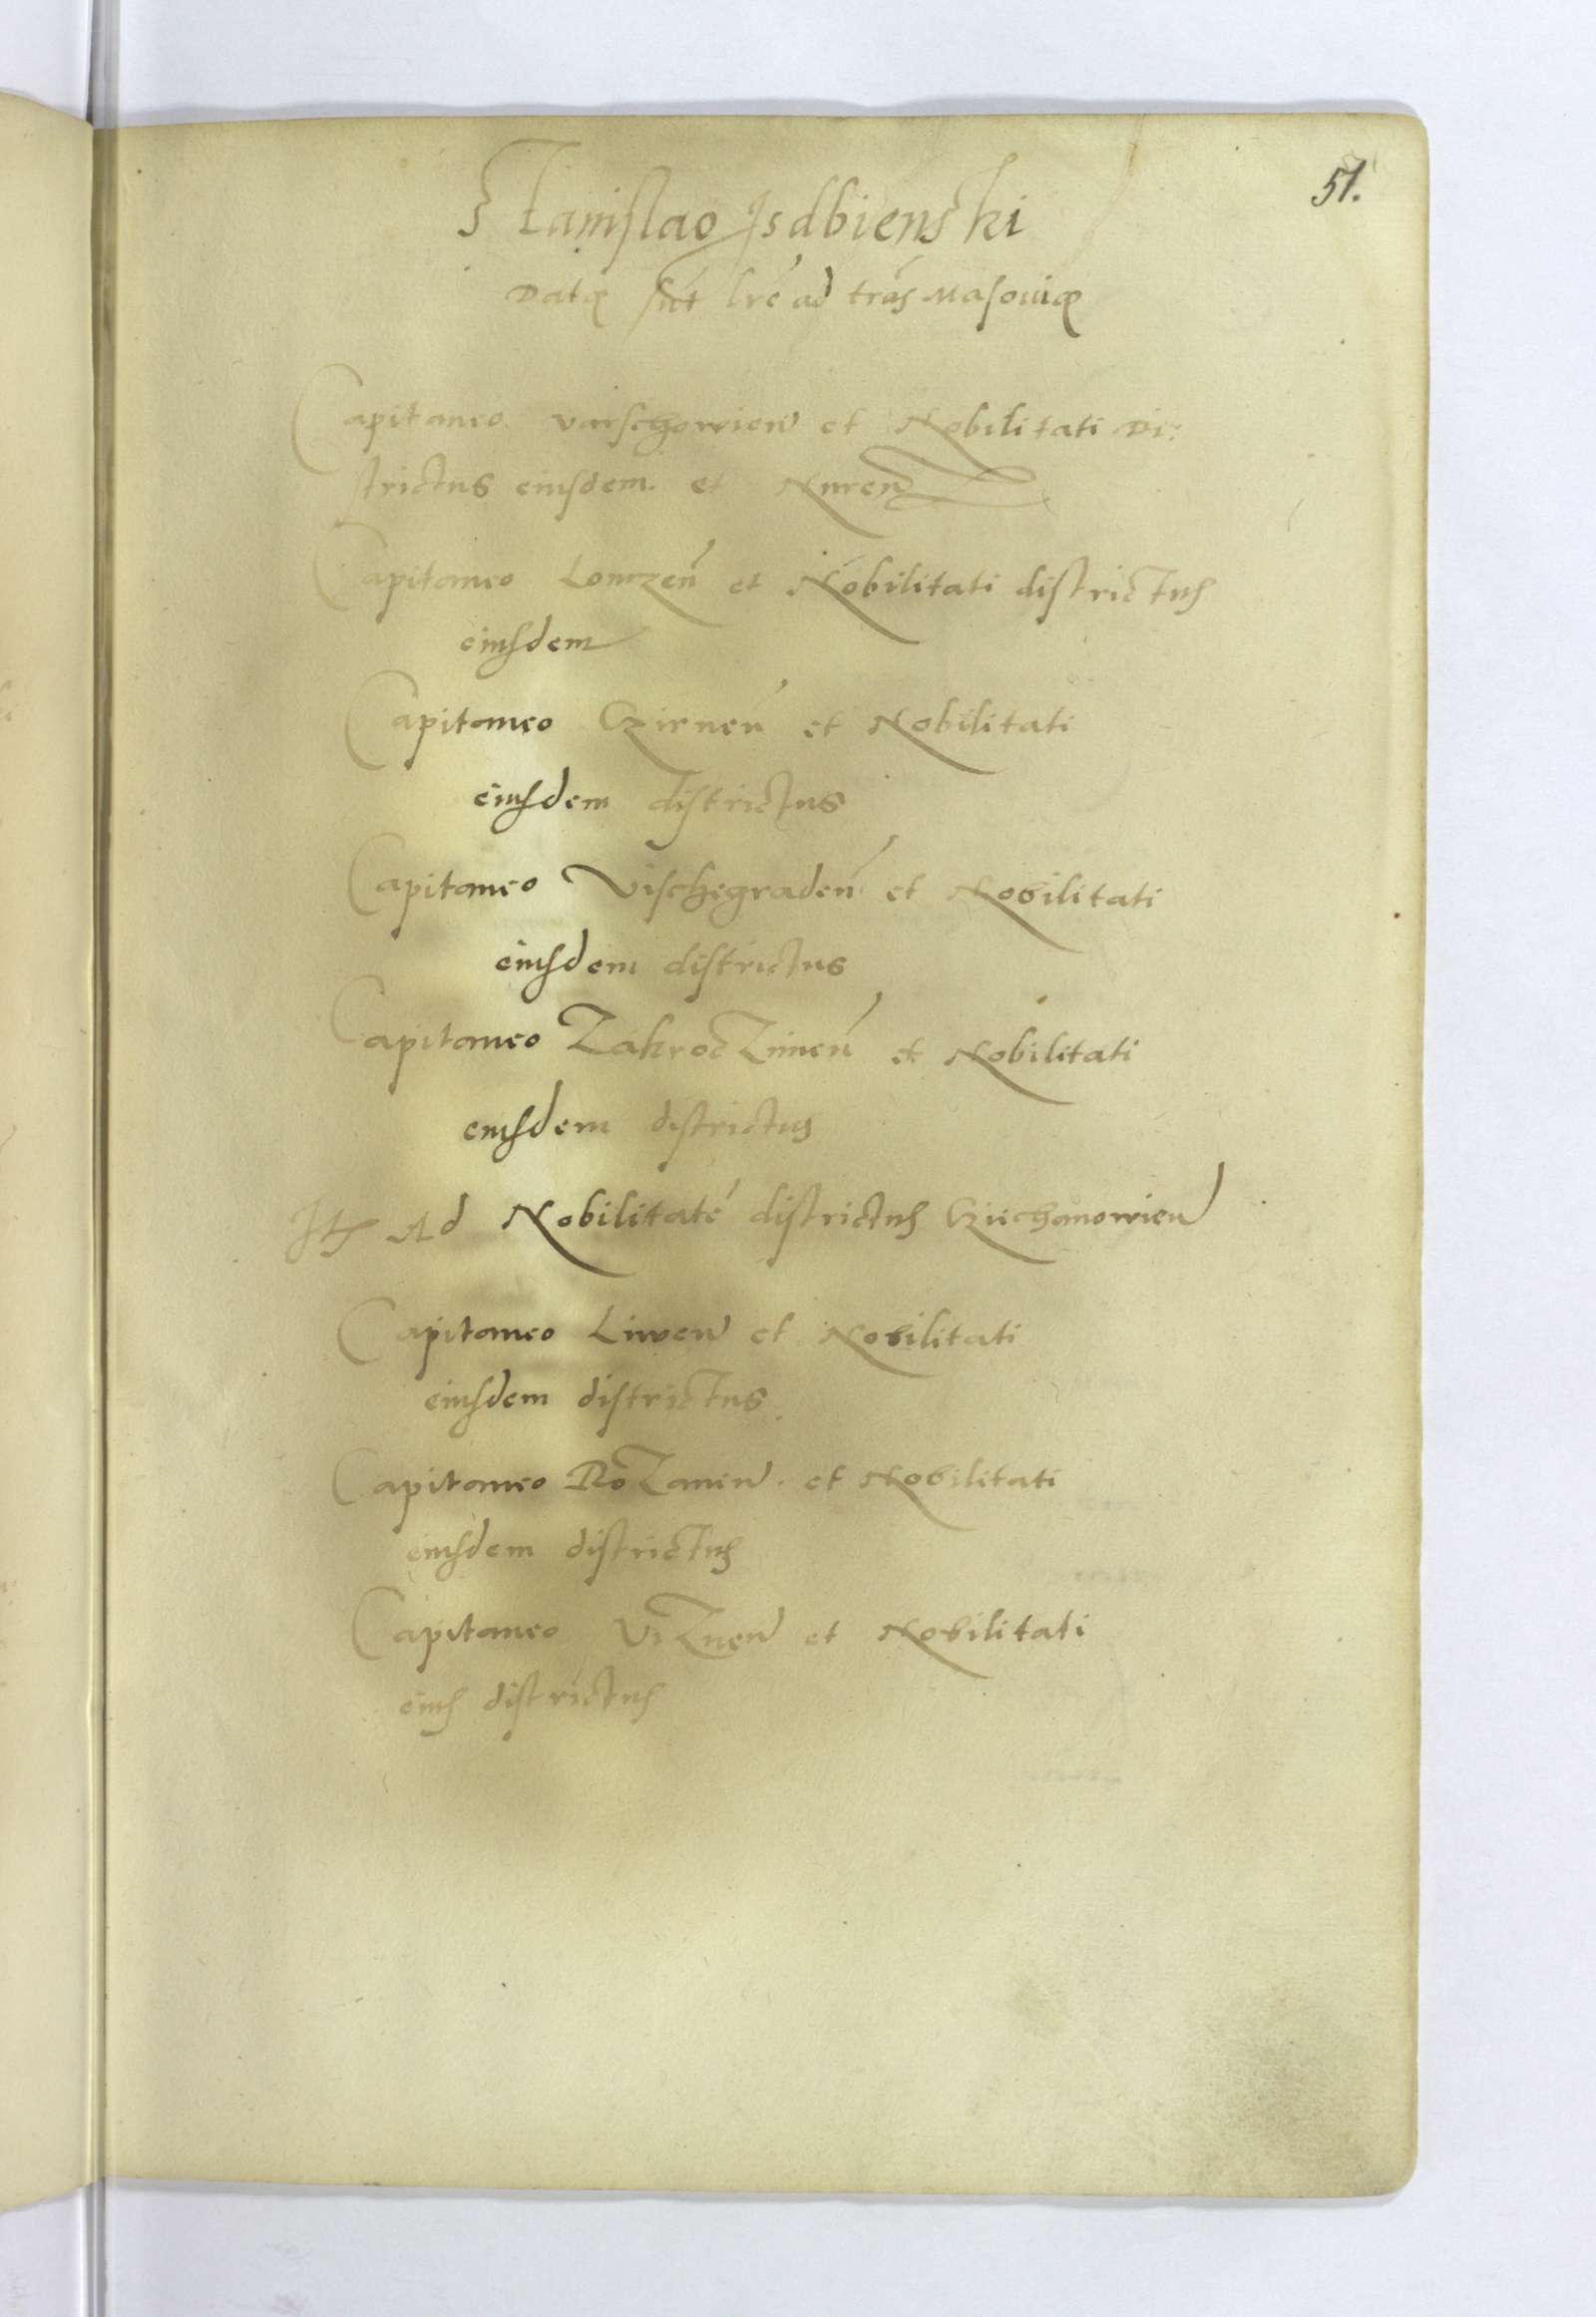 51.
Stanislao Isdbienski
Datę sūt lrē ad trās Masouię
Capitaneo varschowien̄ et Nobilitati Di:
strictus eiusdem et Nuren̄
Capitaneo Lomzen̄ et Nobilitati districtus
eiusdem
Capitaneo Czirnen̄ et Nobilitati
eiusdem districtus
Capitaneo Vischegraden̄ et Nobilitati
eiusdem districtus
Capitaneo Zakroczimen̄ et Nobilitati
eiusdem districtus
Itē Ad Nobilitatē districtus Cziechanowien̄
Capitaneo Liwen̄ et Nobilitati
eiusdem districtus
Capitaneo Rozanen̄ et Nobilitati
eiusdem districtus
Capitaneo Viznen̄ et Nobilitati
eius districtus